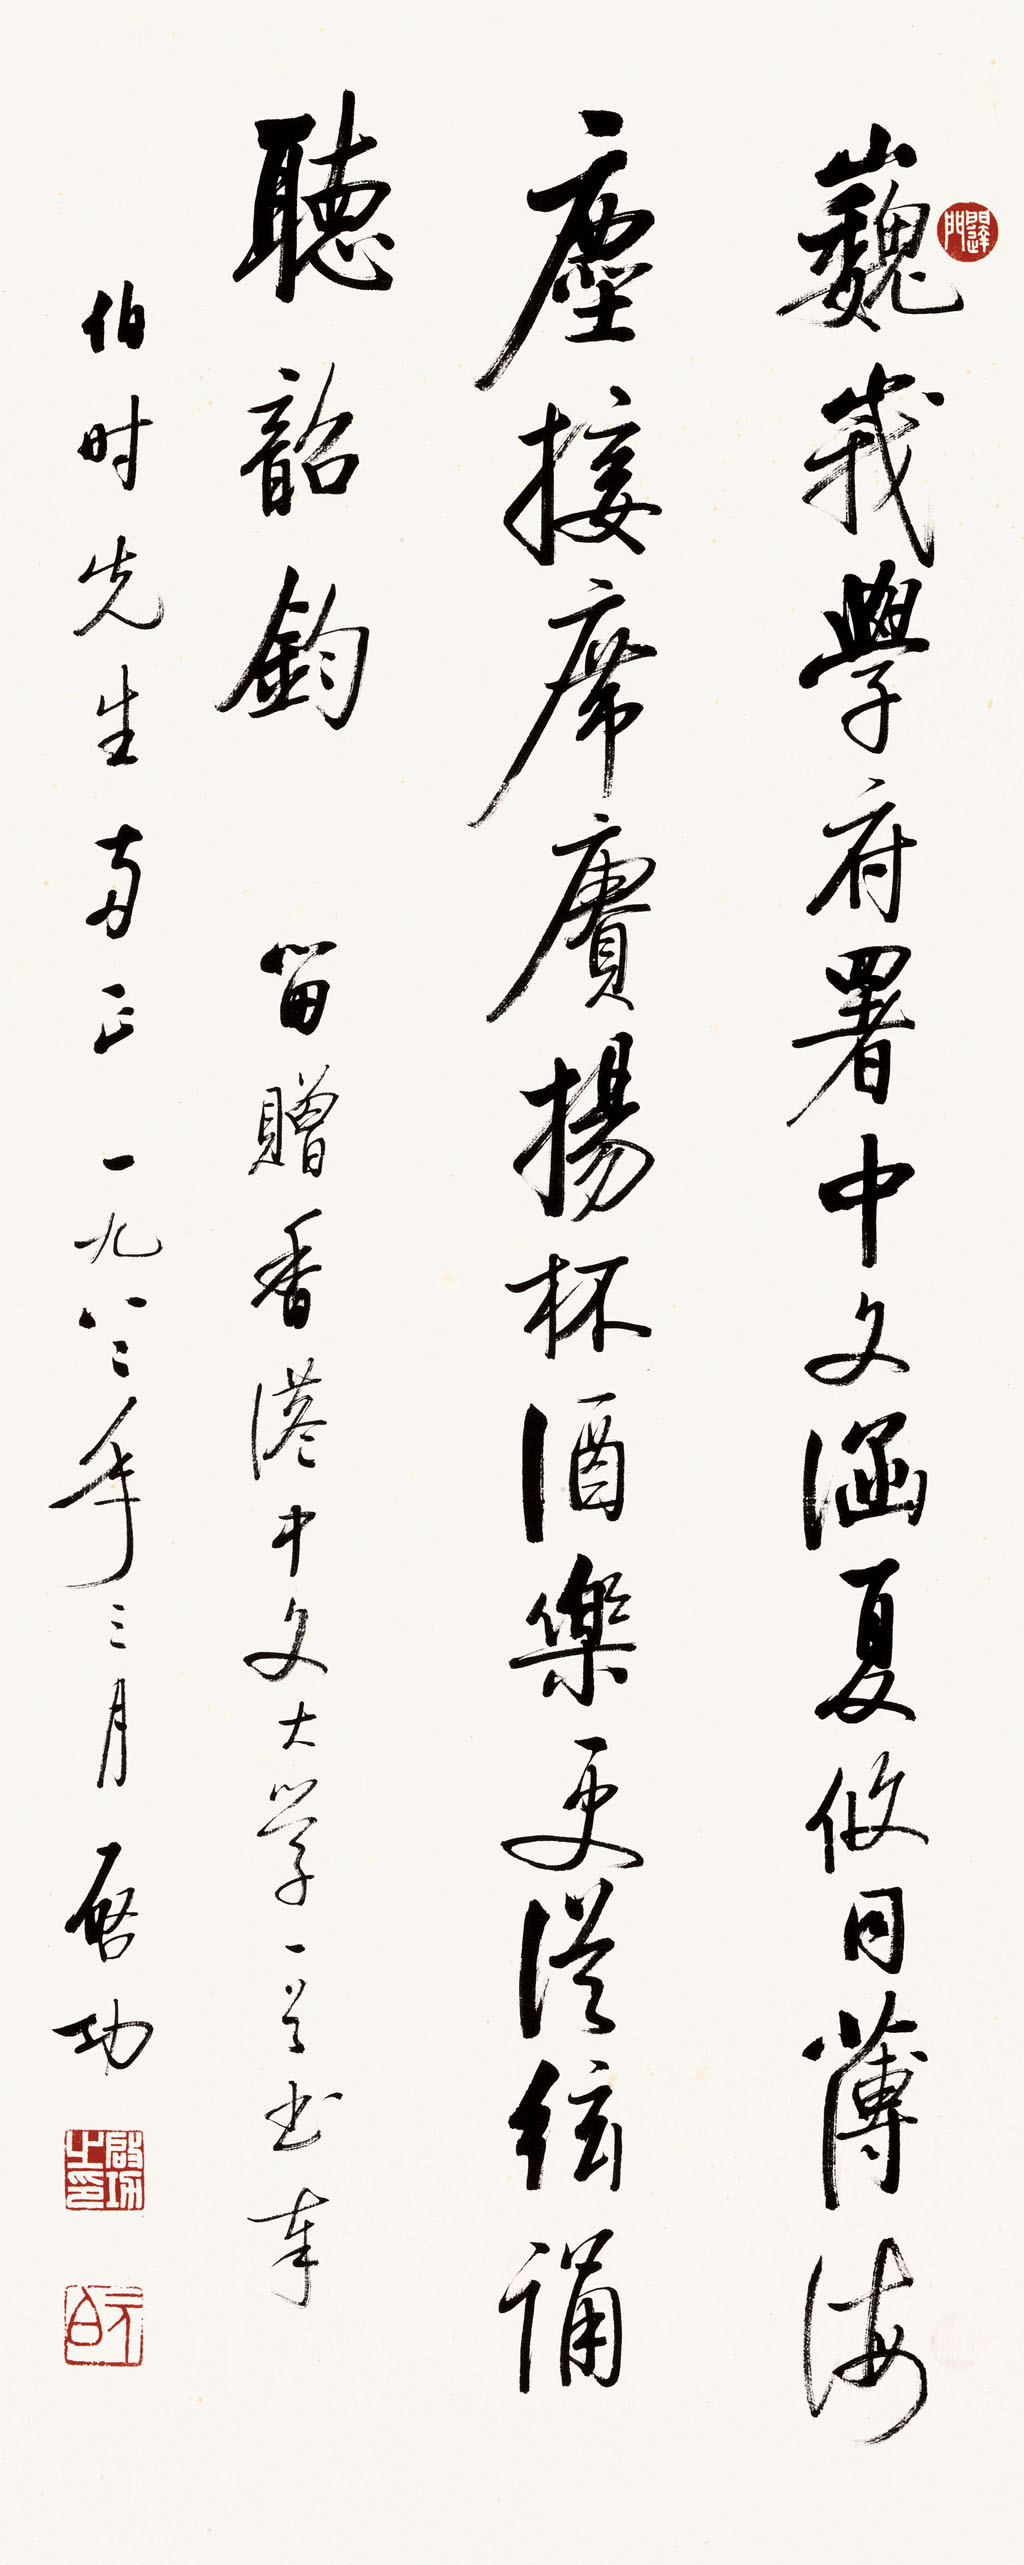 巍峩學府署中文涵夏攸同薄海
塵接席賡揚杯酒樂更從絃誦
聽韶鈞 留贈香港中文大学一首书奉
伯时先生两正 一九八二年三月 启功
啟功之印
元白